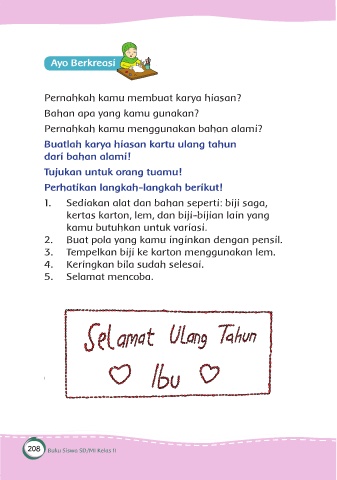 Ayo Berkreasi
Pernahkah kamu membuat karya hiasan?
Bahan apa yang kamu gunakan?
Pernahkah kamu menggunakan bahan alami?
Buatlah karya hiasan kartu ulang tahun
dari bahan alami!
Tujukan untuk orang tuamu!
Perhatikan langkah-langkah berikut!
1. Sediakan alat dan bahan seperti: biji saga,
kertas karton, lem, dan biji-bijian lain yang
kamu butuhkan untuk variasi.
2. Buat pola yang kamu inginkan dengan pensil.
3. Tempelkan biji ke karton menggunakan lem.
4. Keringkan bila sudah selesai.
5. Selamat mencoba.
Selamat Ulang Tahun
Ibu
208 Buku Siswa SD/MI Kelas II